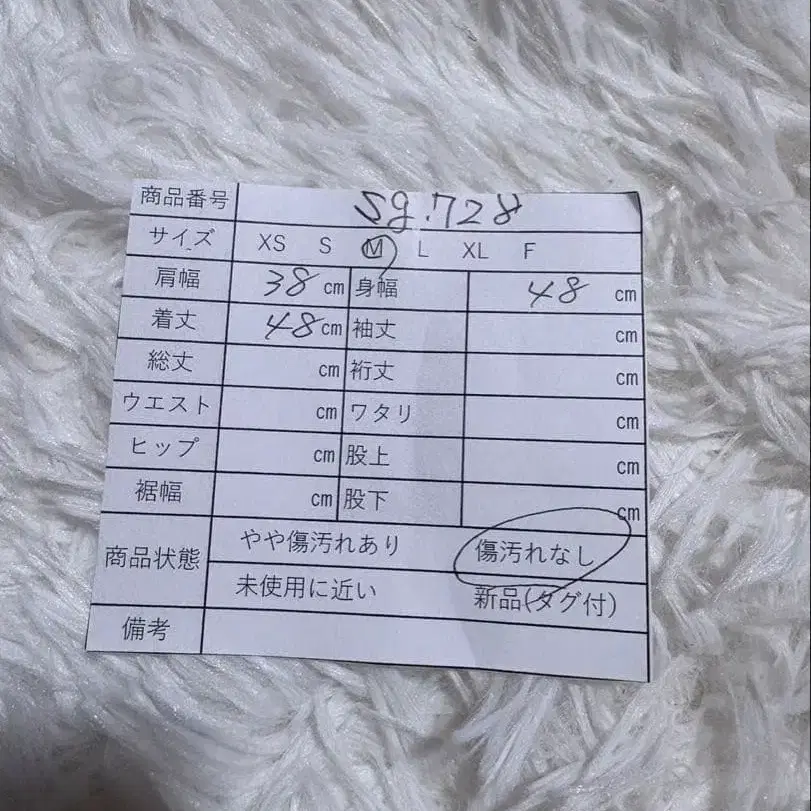 商品番号 sg.728
サイズ XS S M L XL F
肩幅 38 cm 身幅 48 cm
着丈 48 cm 袖丈 cm
総丈 cm 裄丈 cm
ウエスト cm ワタリ cm
ヒップ cm 股上 cm
裾幅 cm 股下 cm
商品状態 やや傷汚れあり 傷汚れなし
未使用に近い 新品(タグ付)
備考